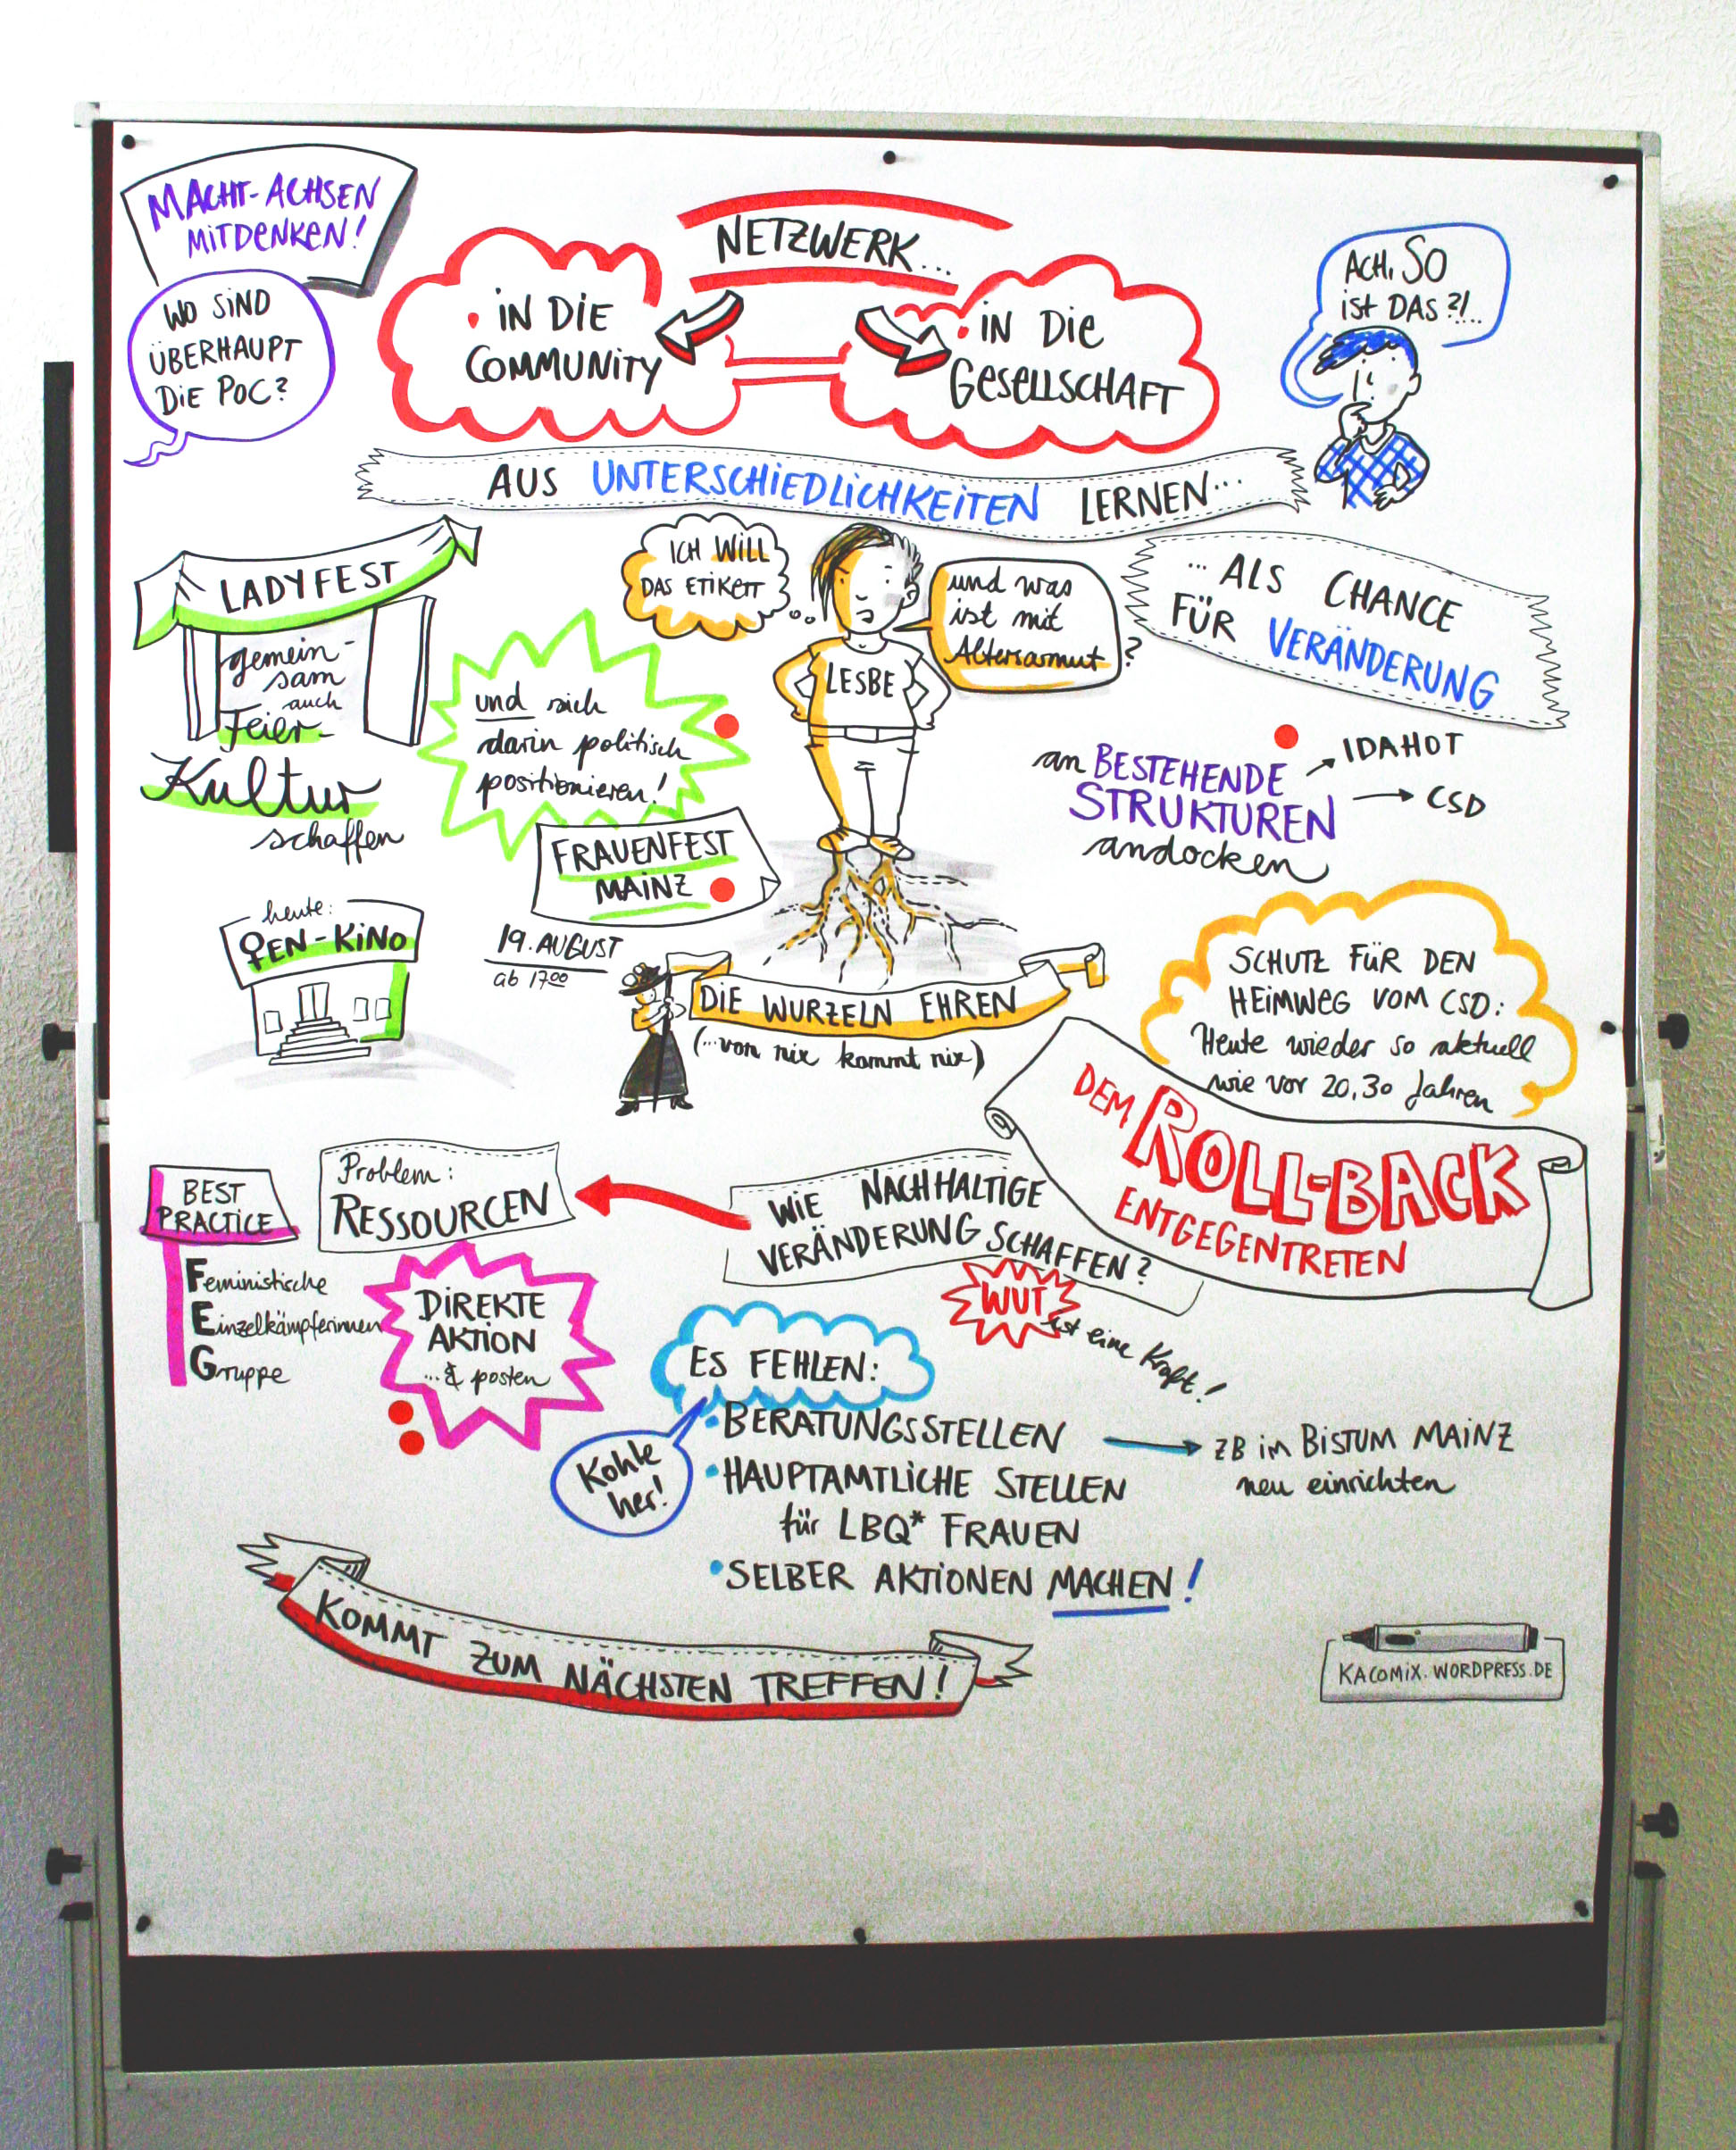 MACHT-ACHSEN
MITDENKEN!
WO SIND
ÜBERHAUPT
DIE POC?
NETZWERK...
• IN DIE
COMMUNITY
• IN DIE
GESELLSCHAFT
ACH, SO
IST DAS?!..
AUS UNTERSCHIEDLICHKEITEN LERNEN...
...ALS CHANCE
FÜR VERÄNDERUNG
LADYFEST
gemein-
sam
auch
Feier-
Kultur
schaffen
und sich
darin politisch
positionieren!
ICH WILL
DAS ETIKETT
LESBE
und was
ist mit
Altersarmut?
an BESTEHENDE
STRUKTUREN
andocken
IDAHOT
CSD
FRAUENFEST
MAINZ
19. AUGUST
ab 17 00
heute:
♀EN-KINO
DIE WURZELN EHREN
(...von nix kommt nix)
SCHUTZ FÜR DEN
HEIMWEG VOM CSD:
Heute wieder so aktuell
wie vor 20, 30 Jahren
DEM ROLL-BACK
ENTGEGENTRETEN
WIE NACHHALTIGE
VERÄNDERUNG SCHAFFEN?
WUT
ist eine Kraft!
Problem:
RESSOURCEN
BEST
PRACTICE
Feministische
Einzelkämpferinnen
Gruppe
DIREKTE
AKTION
...& posten
ES FEHLEN:
Kohle
her!
• BERATUNGSSTELLEN
ZB im BISTUM MAINZ
neu einrichten
• HAUPTAMTLICHE STELLEN
für LBQ* FRAUEN
• SELBER AKTIONEN MACHEN!
KOMMT ZUM NÄCHSTEN TREFFEN!
KACOMIX.WORDPRESS.DE